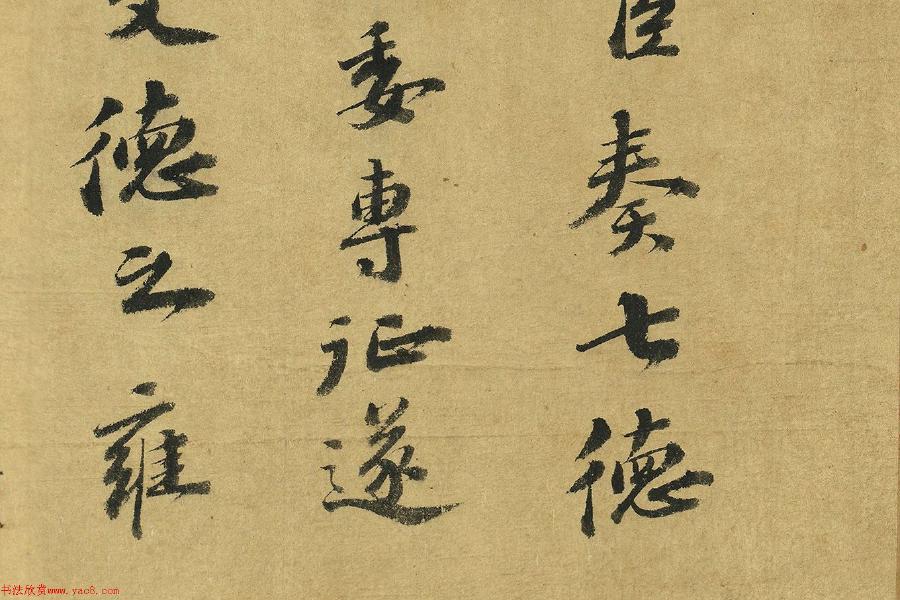 臣奏七德
委專征遂
文德之雍
书法欣赏www.yac8.com